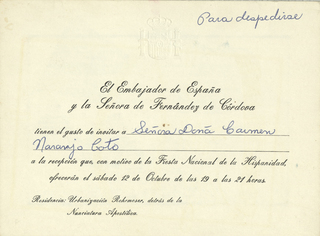 Para despedirse
El Embajador de España
y la Señora de Fernández de Córdova
tienen el gusto de invitar a Señora Doña Carmen
Naranjo Coto
a la recepción que, con motivo de la Fiesta Nacional de la Hispanidad,
ofrecerán el sábado 12 de Octubre de las 19 a las 21 horas.
Residencia: Urbanización Rohrmoser, detrás de la
Nunciatura Apostólica.